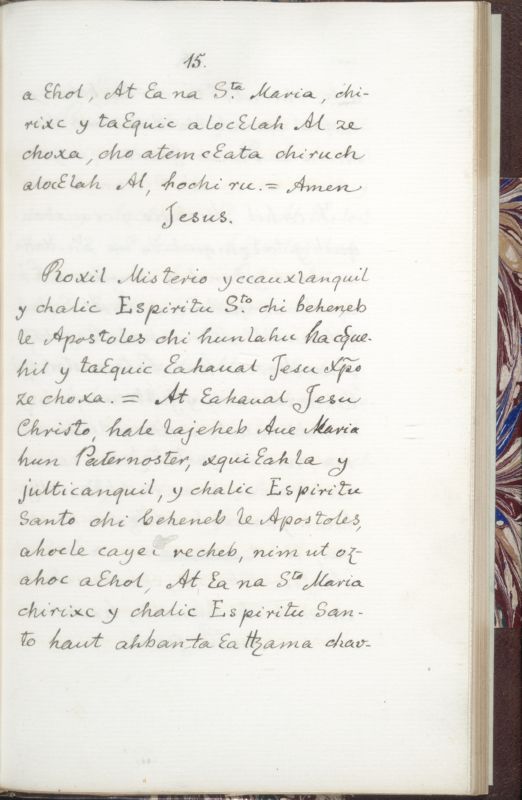 15.
a Ɛhol, At Ɛa na S.ta Maria, chi-
rixc y taƐquic alocƐlah Al ze
choxa, cho atem cƐata chiruch
alocƐlah Al, hochi ru. = Amen
Jesus.
Roxil Misterio yccauxlanquil
y chalic Espiritu S.to chi beheneb
le Apostoles chi hunlahu
hil y taƐquic Ɛahaual Jesu Xp̃o
ze choxa. = At Ɛahaual Jesu
Christo, hale lajeheb Aue Maria
hun Paternoster, xquiƐahla y
julticanquil, y chalic Espiritu
Santo chi beheneb le Apostoles,
ahocle cayei recheb, nim ut oꜫ-
ahoc aƐhol, At Ɛa na S.ta Maria
chirixc y chalic Espiritu San-
to haut ahbanta Ɛa chav-